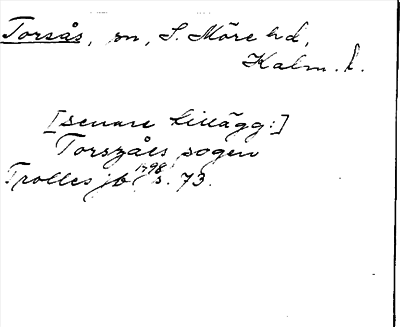 Torsås, sn, S. Möre hd,
Kalm. l.
[senare tillägg:]
Torszåes sogen
Trolles jb 1498 s. 73.